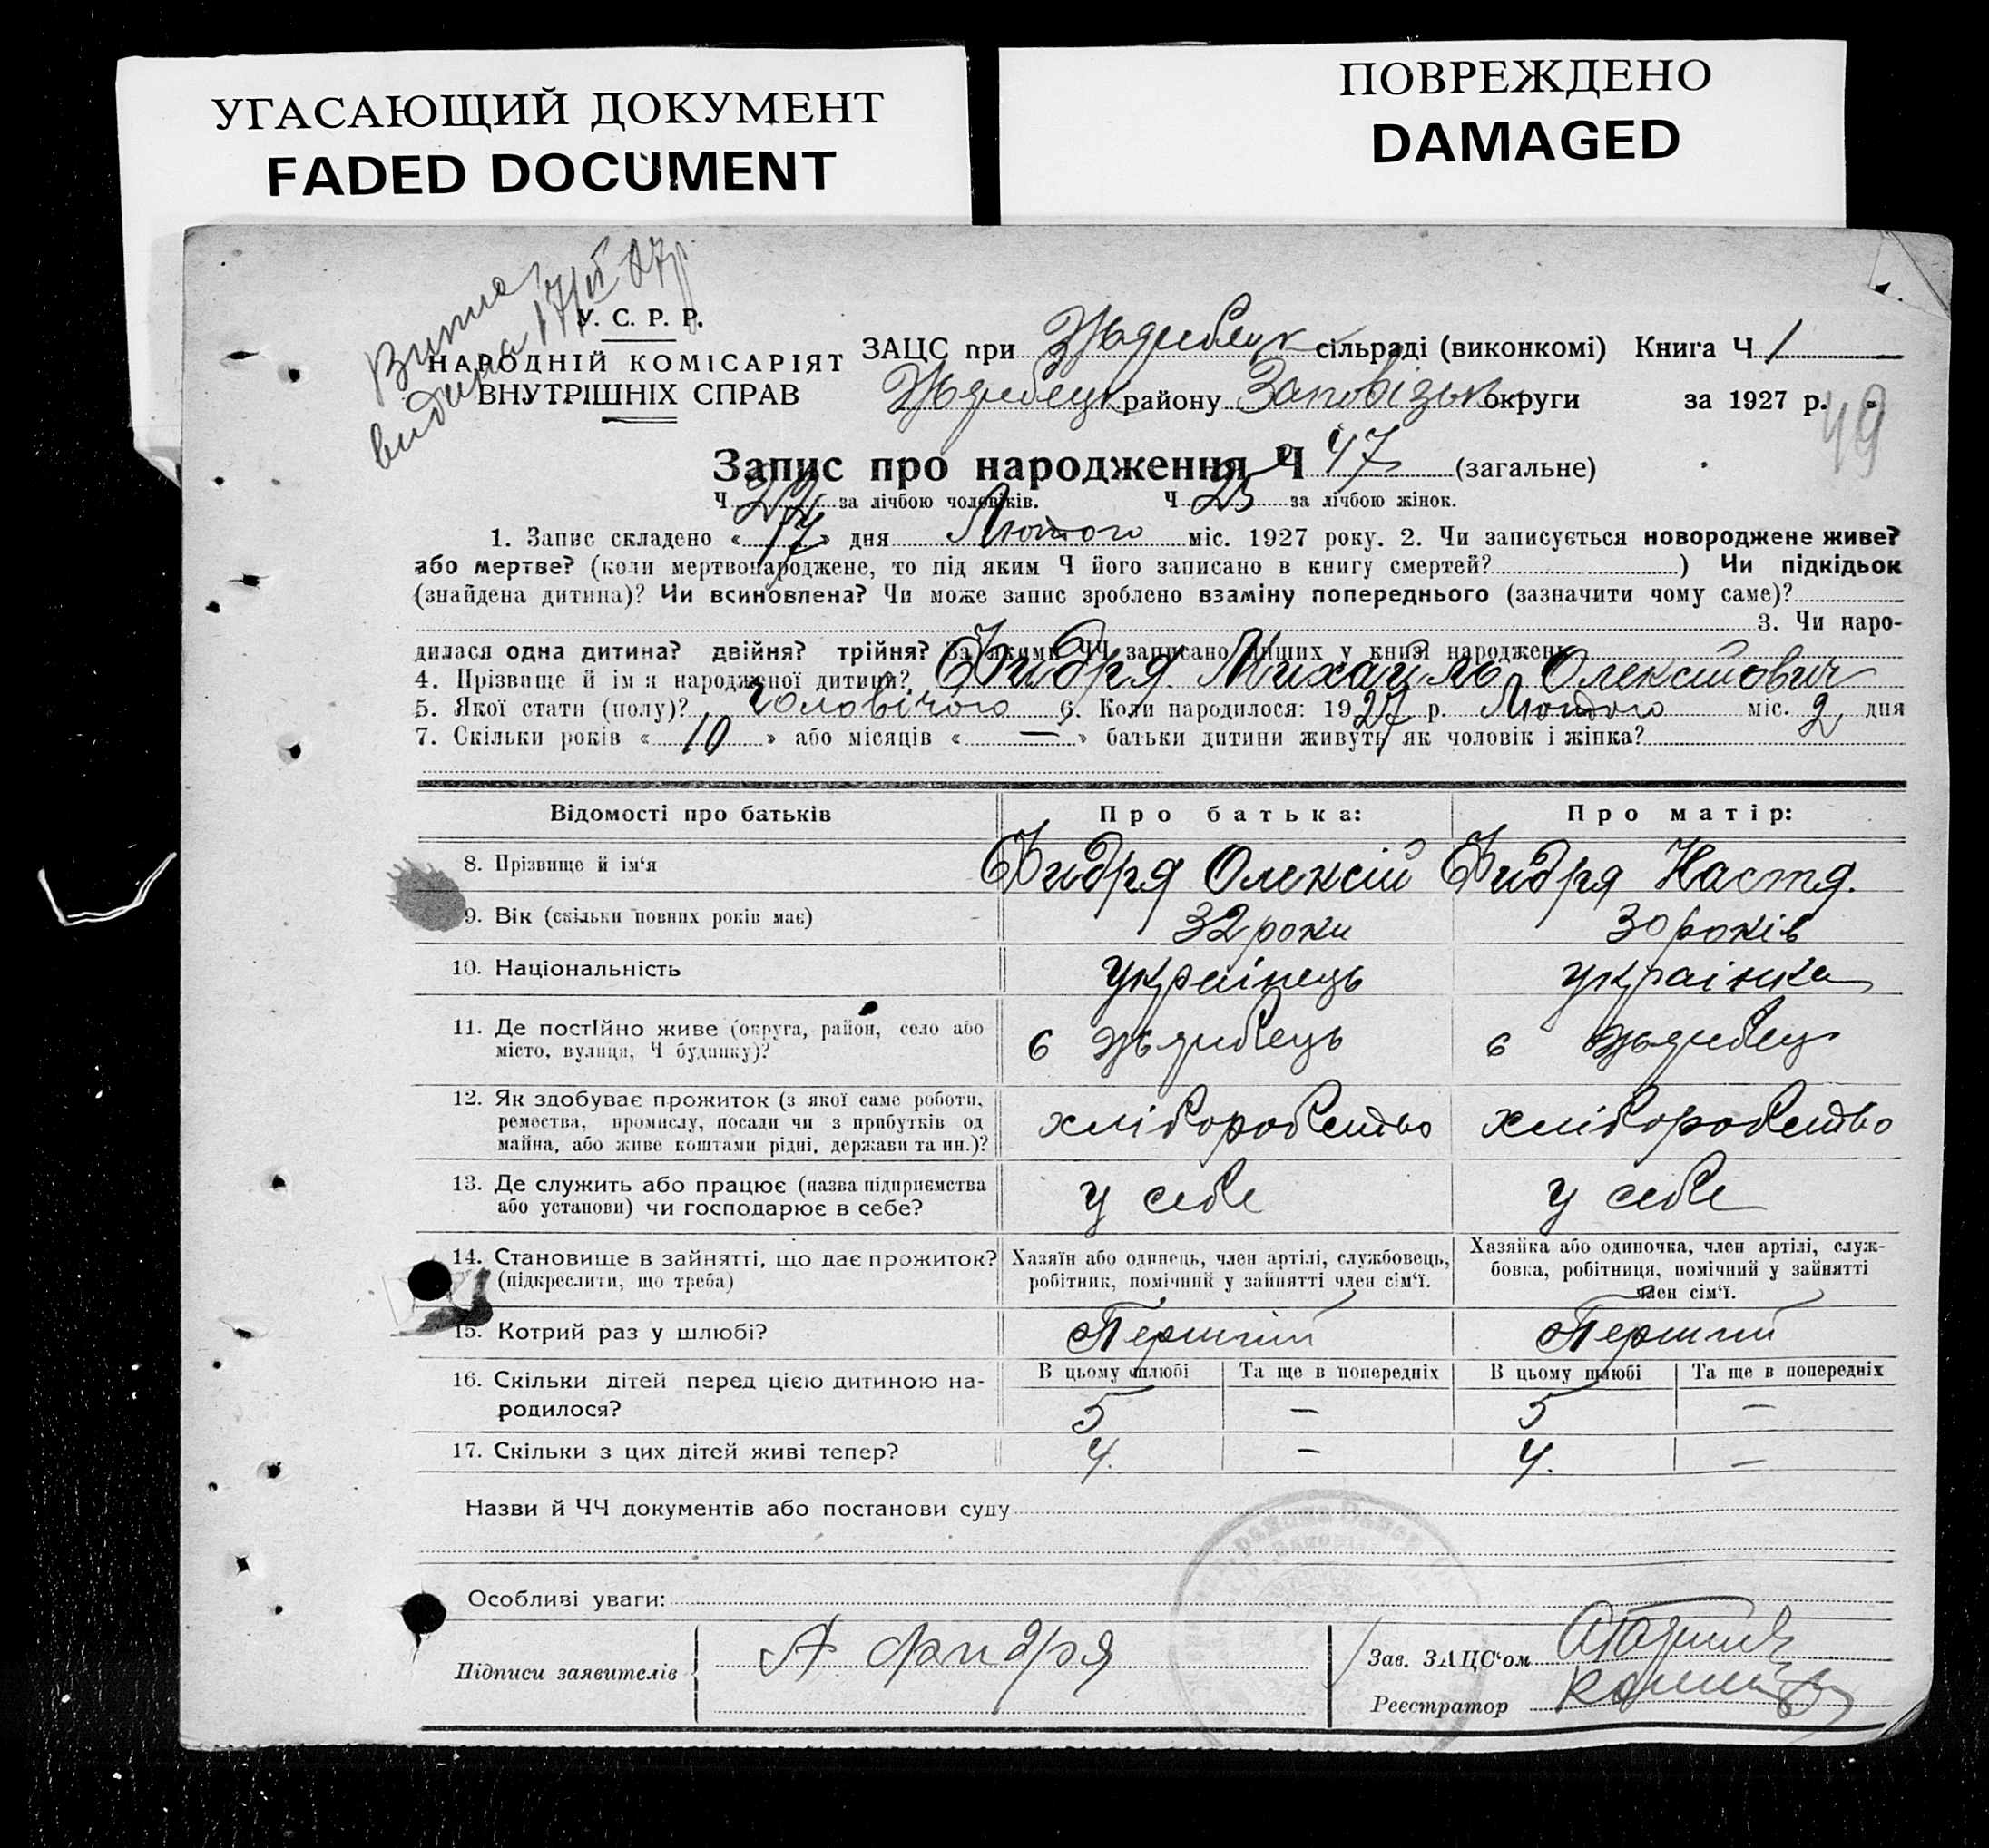 УГАСАЮЩИЙ ДОКУМЕНТ
FADED DOCUMENT
ПОВРЕЖДЕНО
DAMAGED
видана 17/II 27р.
У. С. Р. Р.
НАРОДНІЙ КОМІСАРІЯТ
ВНУТРІШНІХ СПРАВ
ЗАЦС при сільраді (виконкомі) Книга Ч 1
району округи за 1927 р.
49
Запис про народження Ч 47 (загальне)
Ч 22 за лічбою чоловіків. Ч 25 за лічбою жінок.
1. Запис складено « 17 » дня Лютого міс. 1927 року. 2. Чи записується новороджене живе?
або мертве? (коли мертвонароджене, то під яким Ч його записано в книгу смертей? ) Чи підкідьок
(знайдена дитина)? Чи всиновлена? Чи може запис зроблено взаміну попереднього (зазначити чому саме)?
3. Чи наро-
дилася одна дитина? двійня? трійня? За якими ЧЧ записано інших у книзі народжень
4. Прізвище й ім'я народженої дитини? Фидря Михаиль Олексійович
5. Якої стати (полу)? чоловічого 6. Коли народилося: 1927 р. Лютого міс. 2 дня
7. Скільки років « 10 » або місяців « — » батьки дитини живуть як чоловік і жінка?
Відомості про батьків Про батька: Про матір:
8. Прізвище й ім'я Фидря Олексій Фидря Настя.
9. Вік (скільки повних років має) 32 роки 30 років
10. Національність українець українка
11. Де постІйно живе (округа, район, село або
місто, вулиця, Ч будинку)?
12. Як здобуває прожиток (з якої саме роботи,
ремества, промислу, посади чи з прибутків од
майна, або живе коштами рідні, держави та ин.)? хліборобство хліборобство
13. Де служить або працює (назва підприємства
або установи) чи господарює в себе? у себе у себе
14. Становище в зайнятті, що дає прожиток? Хазяїн або одинець, член артілі, службовець, Хазяйка або одиночка, член артілі, служ-
(підкреслити, що треба) робітник, помічний у зайнятті член сім'ї. бовка, робітниця, помічний у зайнятті
член сім'ї.
15. Котрий раз у шлюбі? Перший Перший
16. Скільки дітей перед цією дитиною на- В цьому шлюбі Та ще в попередніх В цьому шлюбі Та ще в попередніх
родилося? 5 — 5 —
17. Скільки з цих дітей живі тепер? 4. — 4. —
Назви й ЧЧ документів або постанови суду
Особливі уваги:
Підписи заявителів А Фидря Зав. ЗАЦС'ом
Реєстратор